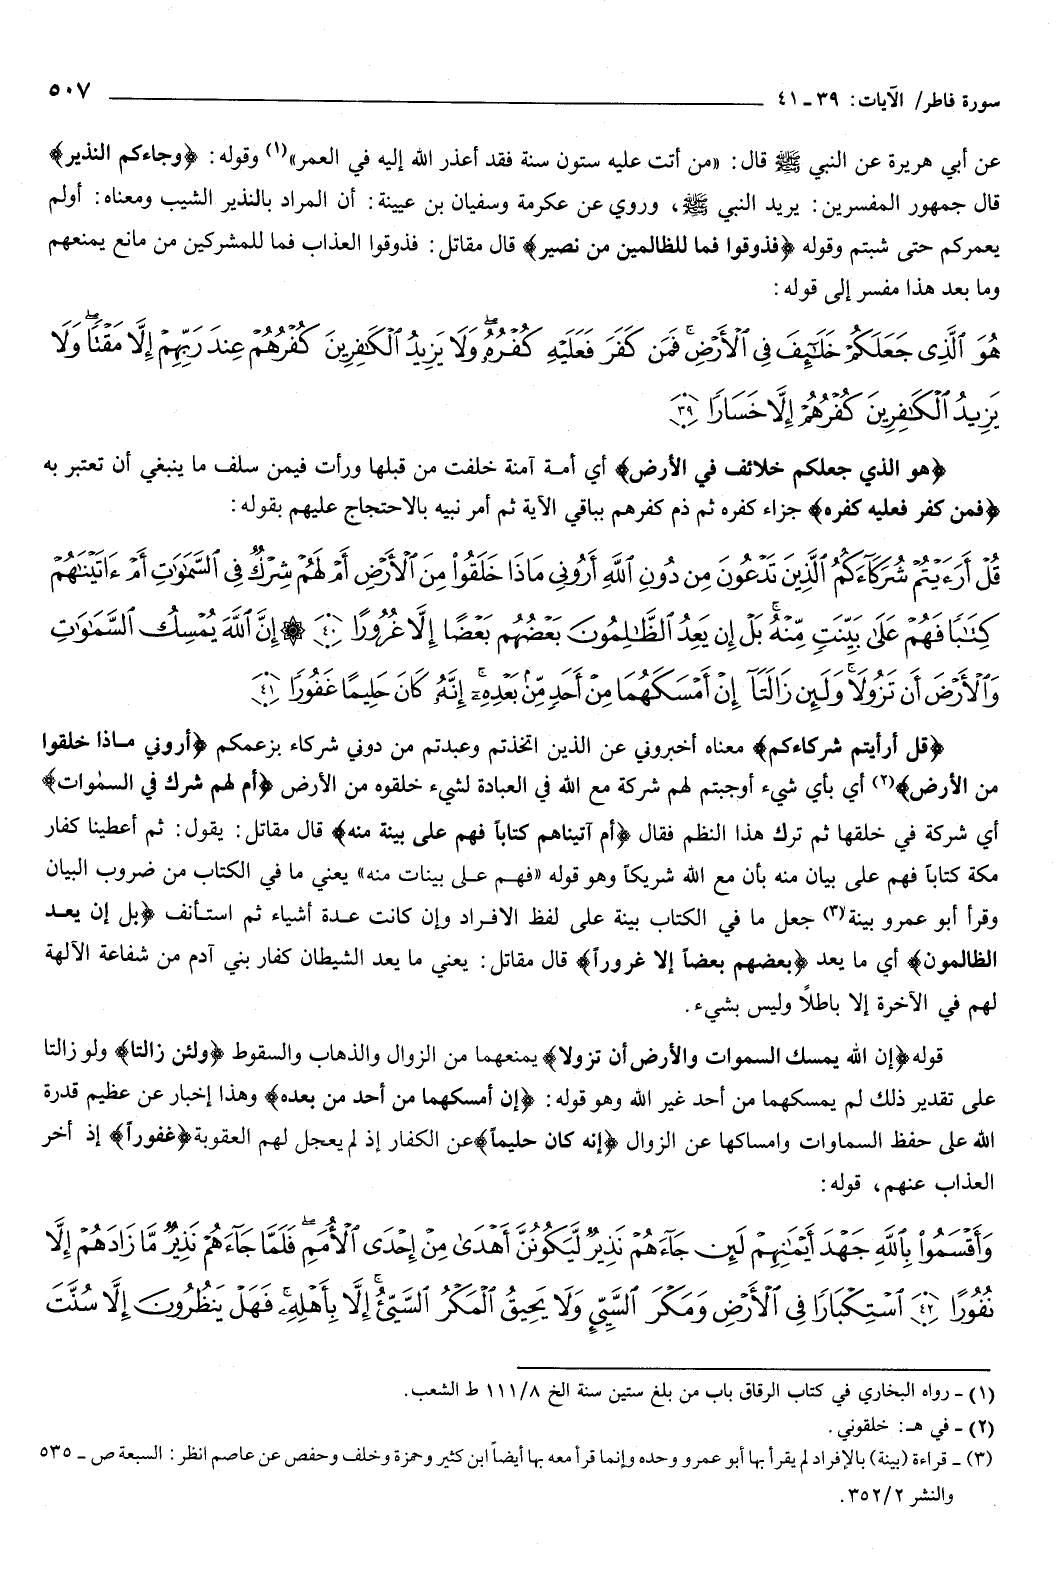 سورة فاطر/ الآيات: ٣٩ ـ ٤١ ٥٠٧
عن أبي هريرة عن النبي ﷺ قال: «من أتت عليه ستون سنة فقد أعذر الله إليه في العمر»(١) وقوله: ﴿وجاءكم النذير﴾
قال جمهور المفسرين: يريد النبي ﷺ، وروي عن عكرمة وسفيان بن عيينة: أن المراد بالنذير الشيب ومعناه: أولم
يعمركم حتى شبتم وقوله ﴿فذوقوا فما للظالمين من نصير﴾ قال مقاتل: فذوقوا العذاب فما للمشركين من مانع يمنعهم
وما بعد هذا مفسر إلى قوله:
هُوَ ٱلَّذِى جَعَلَكُمْ خَلَٰٓئِفَ فِى ٱلْأَرْضِ ۚ فَمَن كَفَرَ فَعَلَيْهِ كُفْرُهُۥ ۖ وَلَا يَزِيدُ ٱلْكَٰفِرِينَ كُفْرُهُمْ عِندَ رَبِّهِمْ إِلَّا مَقْتًا ۖ وَلَا
يَزِيدُ ٱلْكَٰفِرِينَ كُفْرُهُمْ إِلَّا خَسَارًا ٣٩
﴿هو الذي جعلكم خلائف في الأرض﴾ أي أمة آمنة خلفت من قبلها ورأت فيمن سلف ما ينبغي أن تعتبر به
﴿فمن كفر فعليه كفره﴾ جزاء كفره ثم ذم كفرهم بباقي الآية ثم أمر نبيه بالاحتجاج عليهم بقوله:
قُلْ أَرَءَيْتُمْ شُرَكَآءَكُمُ ٱلَّذِينَ تَدْعُونَ مِن دُونِ ٱللَّهِ أَرُونِى مَاذَا خَلَقُوا۟ مِنَ ٱلْأَرْضِ أَمْ لَهُمْ شِرْكٌ فِى ٱلسَّمَٰوَٰتِ أَمْ ءَاتَيْنَٰهُمْ
كِتَٰبًا فَهُمْ عَلَىٰ بَيِّنَتٍ مِّنْهُ ۚ بَلْ إِن يَعِدُ ٱلظَّٰلِمُونَ بَعْضُهُم بَعْضًا إِلَّا غُرُورًا ٤٠ ۞ إِنَّ ٱللَّهَ يُمْسِكُ ٱلسَّمَٰوَٰتِ
وَٱلْأَرْضَ أَن تَزُولَا ۚ وَلَئِن زَالَتَآ إِنْ أَمْسَكَهُمَا مِنْ أَحَدٍ مِّنۢ بَعْدِهِۦٓ ۚ إِنَّهُۥ كَانَ حَلِيمًا غَفُورًا ٤١
﴿قل أرأيتم شركاءكم﴾ معناه أخبروني عن الذين اتخذتم وعبدتم من دوني شركاء بزعمكم ﴿أروني ماذا خلقوا
من الأرض﴾(٢) أي بأي شيء أوجبتم لهم شركة مع الله في العبادة لشيء خلقوه من الأرض ﴿أم لهم شرك في السمٰوات﴾
أي شركة في خلقها ثم ترك هذا النظم فقال ﴿أم آتيناهم كتاباً فهم على بينة منه﴾ قال مقاتل: يقول: ثم أعطينا كفار
مكة كتاباً فهم على بيان منه بأن مع الله شريكاً وهو قوله «فهم على بينات منه» يعني ما في الكتاب من ضروب البيان
وقرأ أبو عمرو بينة(٣) جعل ما في الكتاب بينة على لفظ الافراد وإن كانت عدة أشياء ثم استأنف ﴿بل إن يعد
الظالمون﴾ أي ما يعد ﴿بعضهم بعضاً إلا غروراً﴾ قال مقاتل: يعني ما يعد الشيطان كفار بني آدم من شفاعة الآلهة
لهم في الآخرة إلا باطلًا وليس بشيء.
قوله ﴿إن الله يمسك السموات والأرض أن تزولا﴾ يمنعهما من الزوال والذهاب والسقوط ﴿ولئن زالتا﴾ ولو زالتا
على تقدير ذلك لم يمسكهما من أحد غير الله وهو قوله: ﴿إن أمسكهما من أحد من بعده﴾ وهذا إخبار عن عظيم قدرة
الله على حفظ السماوات وامساكها عن الزوال ﴿إنه كان حليماً﴾ عن الكفار إذ لم يعجل لهم العقوبة ﴿غفوراً﴾ إذ أخر
العذاب عنهم، قوله:
وَأَقْسَمُوا۟ بِٱللَّهِ جَهْدَ أَيْمَٰنِهِمْ لَئِن جَآءَهُمْ نَذِيرٌ لَّيَكُونُنَّ أَهْدَىٰ مِنْ إِحْدَى ٱلْأُمَمِ ۖ فَلَمَّا جَآءَهُمْ نَذِيرٌ مَّا زَادَهُمْ إِلَّا
نُفُورًا ٤٢ ٱسْتِكْبَارًا فِى ٱلْأَرْضِ وَمَكْرَ ٱلسَّيِّئِ ۚ وَلَا يَحِيقُ ٱلْمَكْرُ ٱلسَّيِّئُ إِلَّا بِأَهْلِهِۦ ۚ فَهَلْ يَنظُرُونَ إِلَّا سُنَّتَ
(١) ـ رواه البخاري في كتاب الرقاق باب من بلغ ستين سنة الخ ١١١/٨ ط الشعب.
(٢) ـ في هـ: خلقوني.
(٣) ـ قراءة (بينة) بالإفراد لم يقرأ بها أبو عمرو وحده وإنما قرأ معه بها أيضاً ابن كثير وحمزة وخلف وحفص عن عاصم انظر: السبعة ص ـ ٥٣٥
والنشر ٣٥٢/٢.